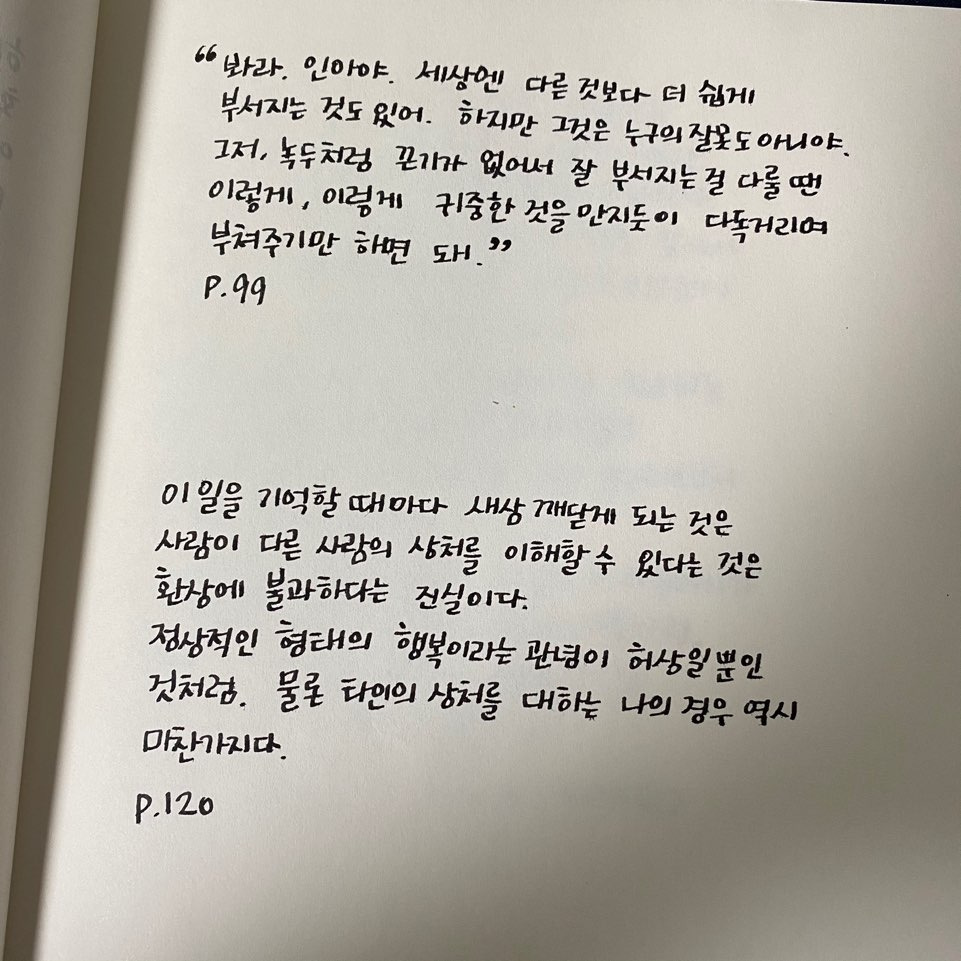 “봐라. 인아야. 세상엔 다른 것보다 더 쉽게
부서지는 것도 있어. 하지만 그것은 누구의 잘못도 아니야.
그저, 녹두처럼 끈기가 없어서 잘 부서지는 걸 다룰 땐
이렇게, 이렇게 귀중한 것을 만지듯이 다독거리며
부쳐주기만 하면 돼.”
P.99
이 일을 기억할 때마다 새삼 깨닫게 되는 것은
사람이 다른 사람의 상처를 이해할 수 있다는 것은
환상에 불과하다는 진실이다.
정상적인 형태의 행복이라는 관념이 허상일 뿐인
것처럼. 물론 타인의 상처를 대하는 나의 경우 역시
마찬가지다.
P.120